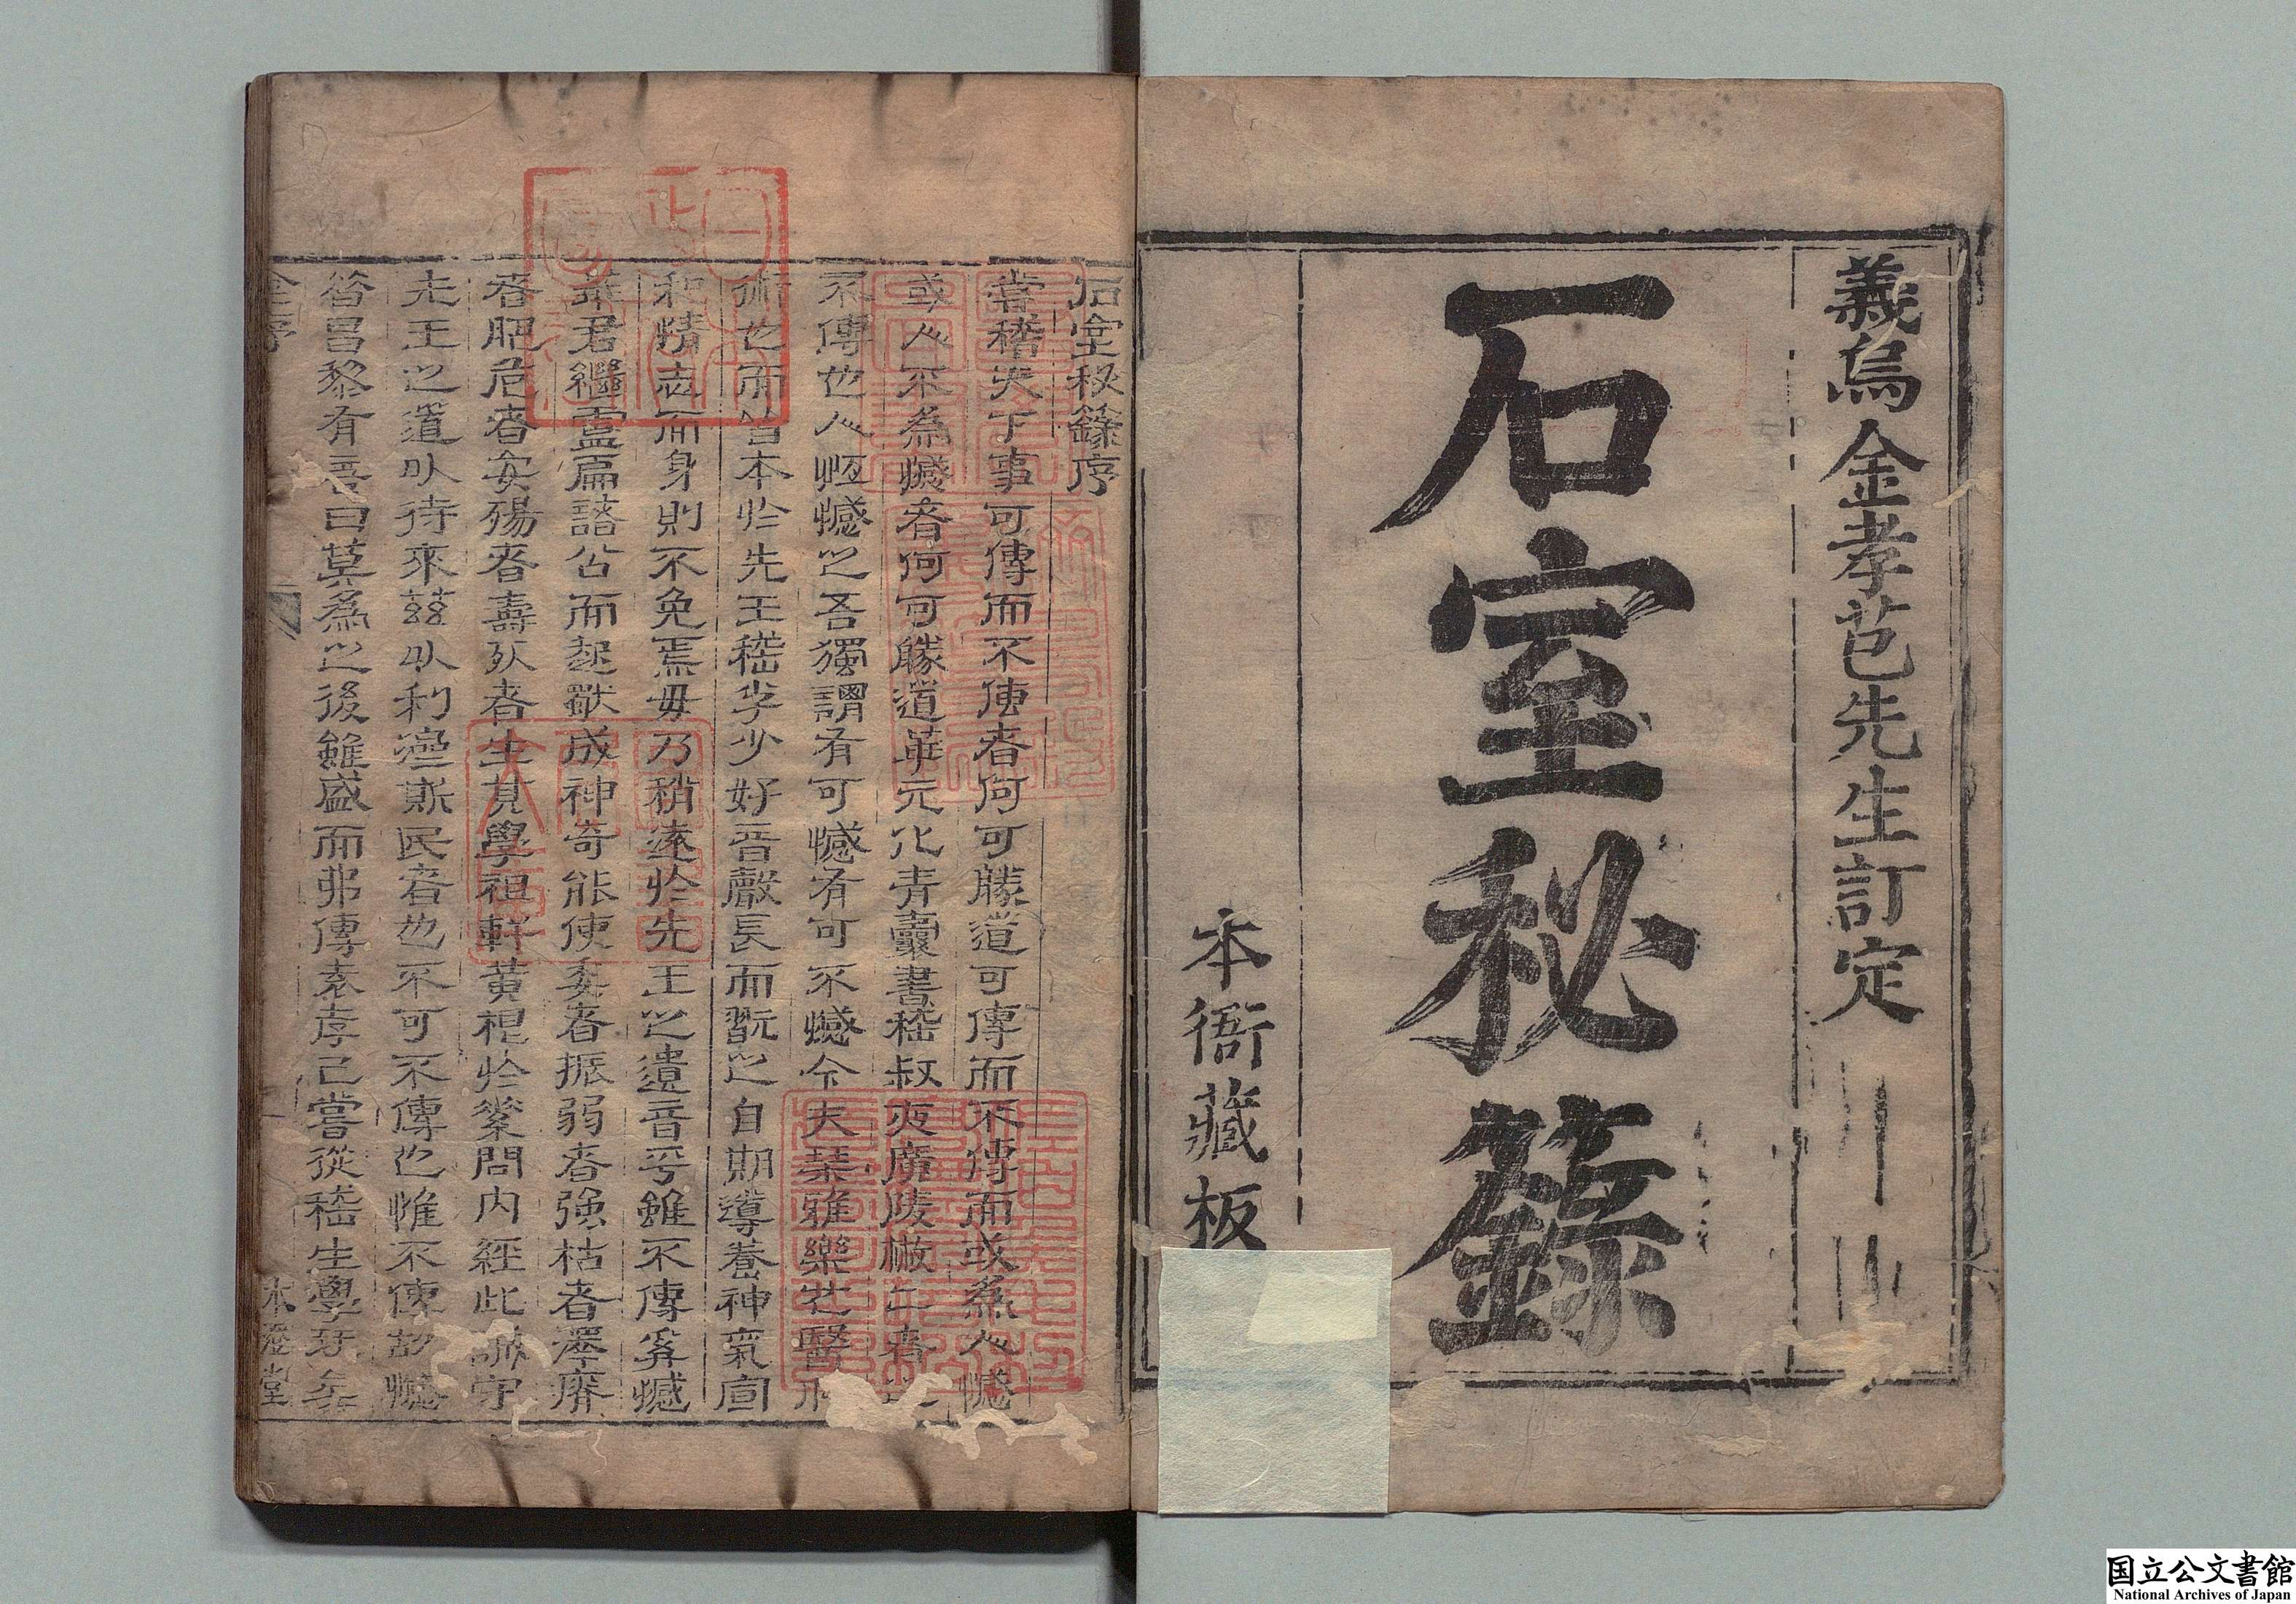 義烏金孝芑先生訂定
石室秘籙
本衙藏板
石室秘籙序
嘗稽天下事可傳而不傳者何可勝道可傳而不傳而或為人憾
或人不為憾者何可勝道華元化青囊書嵇叔夜廣陵散二者
不傳也人恆憾之吾獨謂有可憾有可不憾今夫琴雅樂也醫
術也而皆本於先王嵇李少好音聲長而翫之自期導養神氣宣
和情志而身則不免焉毋乃稍遠於先王之遺音乎雖不傳奚憾
華君繼盧扁諸公而起獸成神奇能使委者振弱者強枯者澤瘠
者肥危者安殤者壽死者生其學祖軒黃根於素問內經此誠守
先王之道以待來茲以利濟斯民者也不可不傳也惟不傳故憾
昔昌黎有言曰莫為之後雖盛而弗傳袁孝己嘗從嵇生學琴矣
金序
本澄堂
国立公文書館
National Archives of Japan